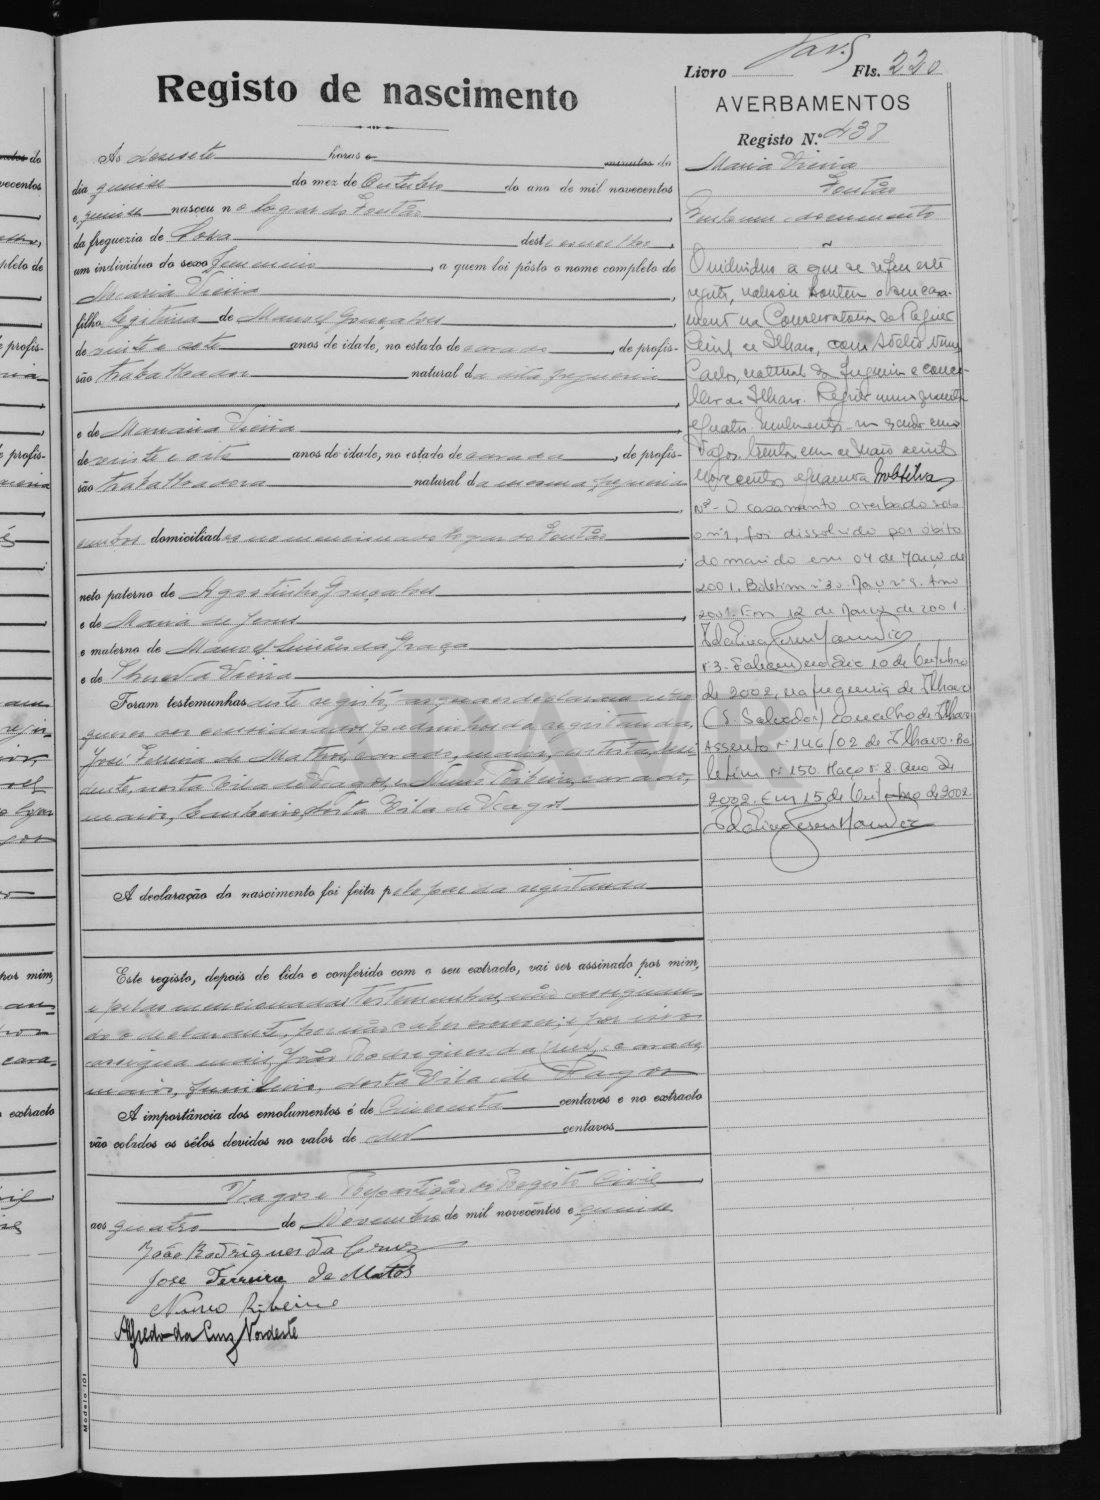 Livro Fls. 220
Registo de nascimento
AVERBAMENTOS
Registo N.º 438
Maria Vieira
Fontão
Ás desesete horas e minutos do
dia quinse do mez de Outubro do ano de mil novecentos
e quinse nasceu no logar do Fontão,
da freguezia de Soza deste concelho,
um individuo do sexo feminino, a quem foi pôsto o nome completo de
Maria Vieira,
filha legitima de Manoel Gonçalves,
de vinte e sete anos de idade, no estado de casado, de profis-
são trabalhador natural da dita freguesia,
e de Mariana Vieira,
de vinte e sete anos de idade, no estado de casada, de profis-
são trabalhadora natural da mesma freguesia,
ambos domiciliados no mencionado logar do Fontão;
neto paterno de Agostinho Gonçalves
e de Maria de Jesus,
e materno de Manoel Simões da Graça
e de Vieira
Foram testemunhas deste registo, as quaes declararam não
querer ser considerados padrinhos da registanda,
José Ferreira de Mattos, casado, maior, resi-
dente, nesta Vila de Vagos, e Nuno Ribeiro, casado,
maior, desta Vila de Vagos
A declaração do nascimento foi feita pelo pae da registanda
Este registo, depois de lido e conferido com o seu extracto, vai ser assinado por mim,
e pelas mencionadas testemunhas, não assignan-
do o declarante, por não saber escrever, e por isso
assigna mais, João Rodrigues da Cruz, casado,
maior, funileiro, desta Vila de Vagos
A importância dos emolumentos é de cincoenta centavos e no extracto
vão colados os sêlos devidos no valor de dez centavos
Vagos e Repartição do Registo Civil,
aos quatro de Novembro de mil novecentos e quinse
João Rodrigues da Cruz
Jose Ferreira de Matos
Nuno Ribeiro
Alfredo da Cruz Nordeste
Modelo 101
O individuo a que se refere este
registo, realisou hontem o seu casa-
mento na Conservatoria do Registo
Civil de Ilhavo, com
natural da freguesia e conce-
lho de Ilhavo.
Vagos, trinta e um de Maio de mil
novecentos e quarenta
Nº2 - O casamento averbado sob
o nº1, foi dissolvido por óbito
do marido em 04 de Março de
2001. Boletim nº30. Maço nº3. Ano
2001. Em 12 de Março de 2001.
nº3 - Faleceu no dia 10 de Outubro
de 2002, na freguesia de Ilhavo
(S. Salvador) concelho de Ilhavo
Assento nº146/02 de Ilhavo. Bo-
letim nº150. Maço nº8. Ano de
2002. Em 15 de Outubro de 2002.
ADAVR